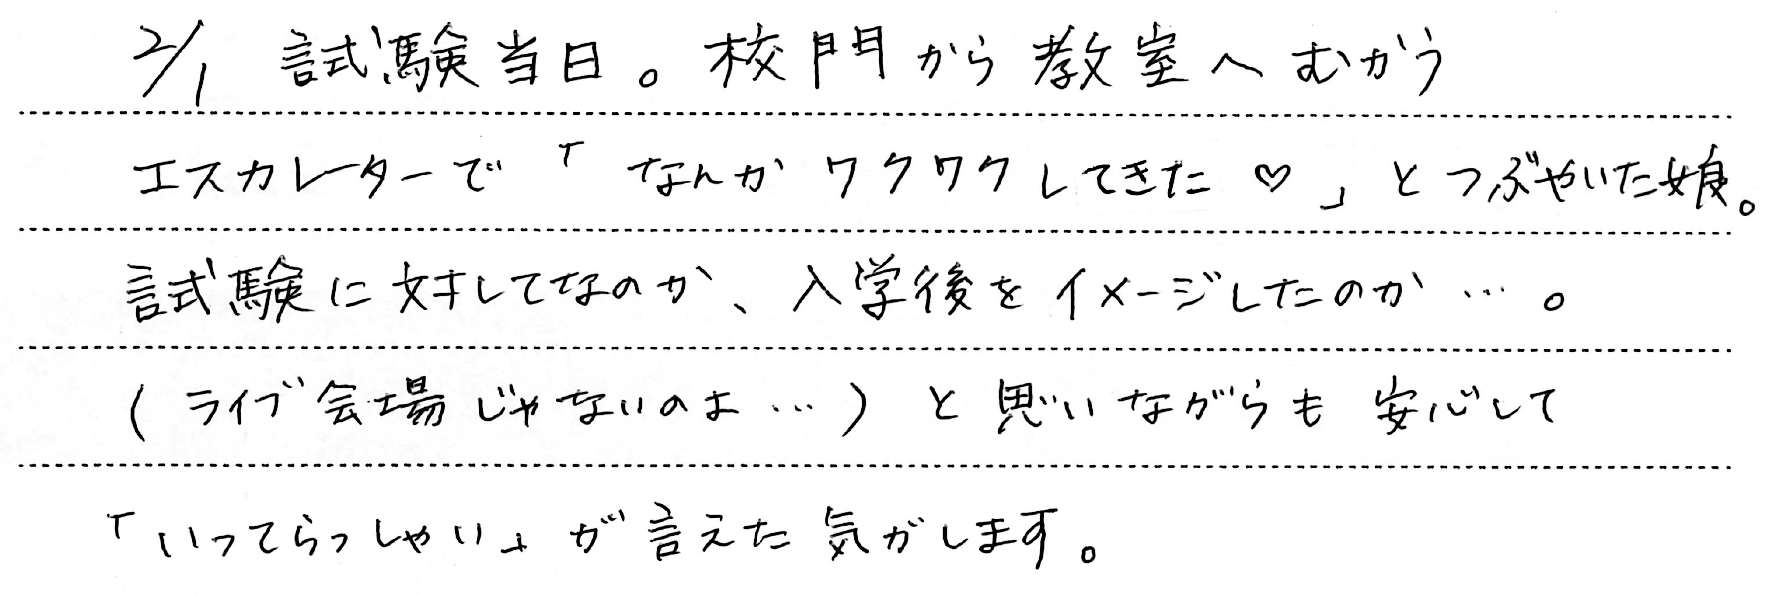 2/1 試験当日。校門から教室へむかう
エスカレーターで「なんかワクワクしてきた♡」とつぶやいた娘。
試験に対してなのか、入学後をイメージしたのか…。
(ライブ会場じゃないのよ…)と思いながらも安心して
「いってらっしゃい」が言えた気がします。